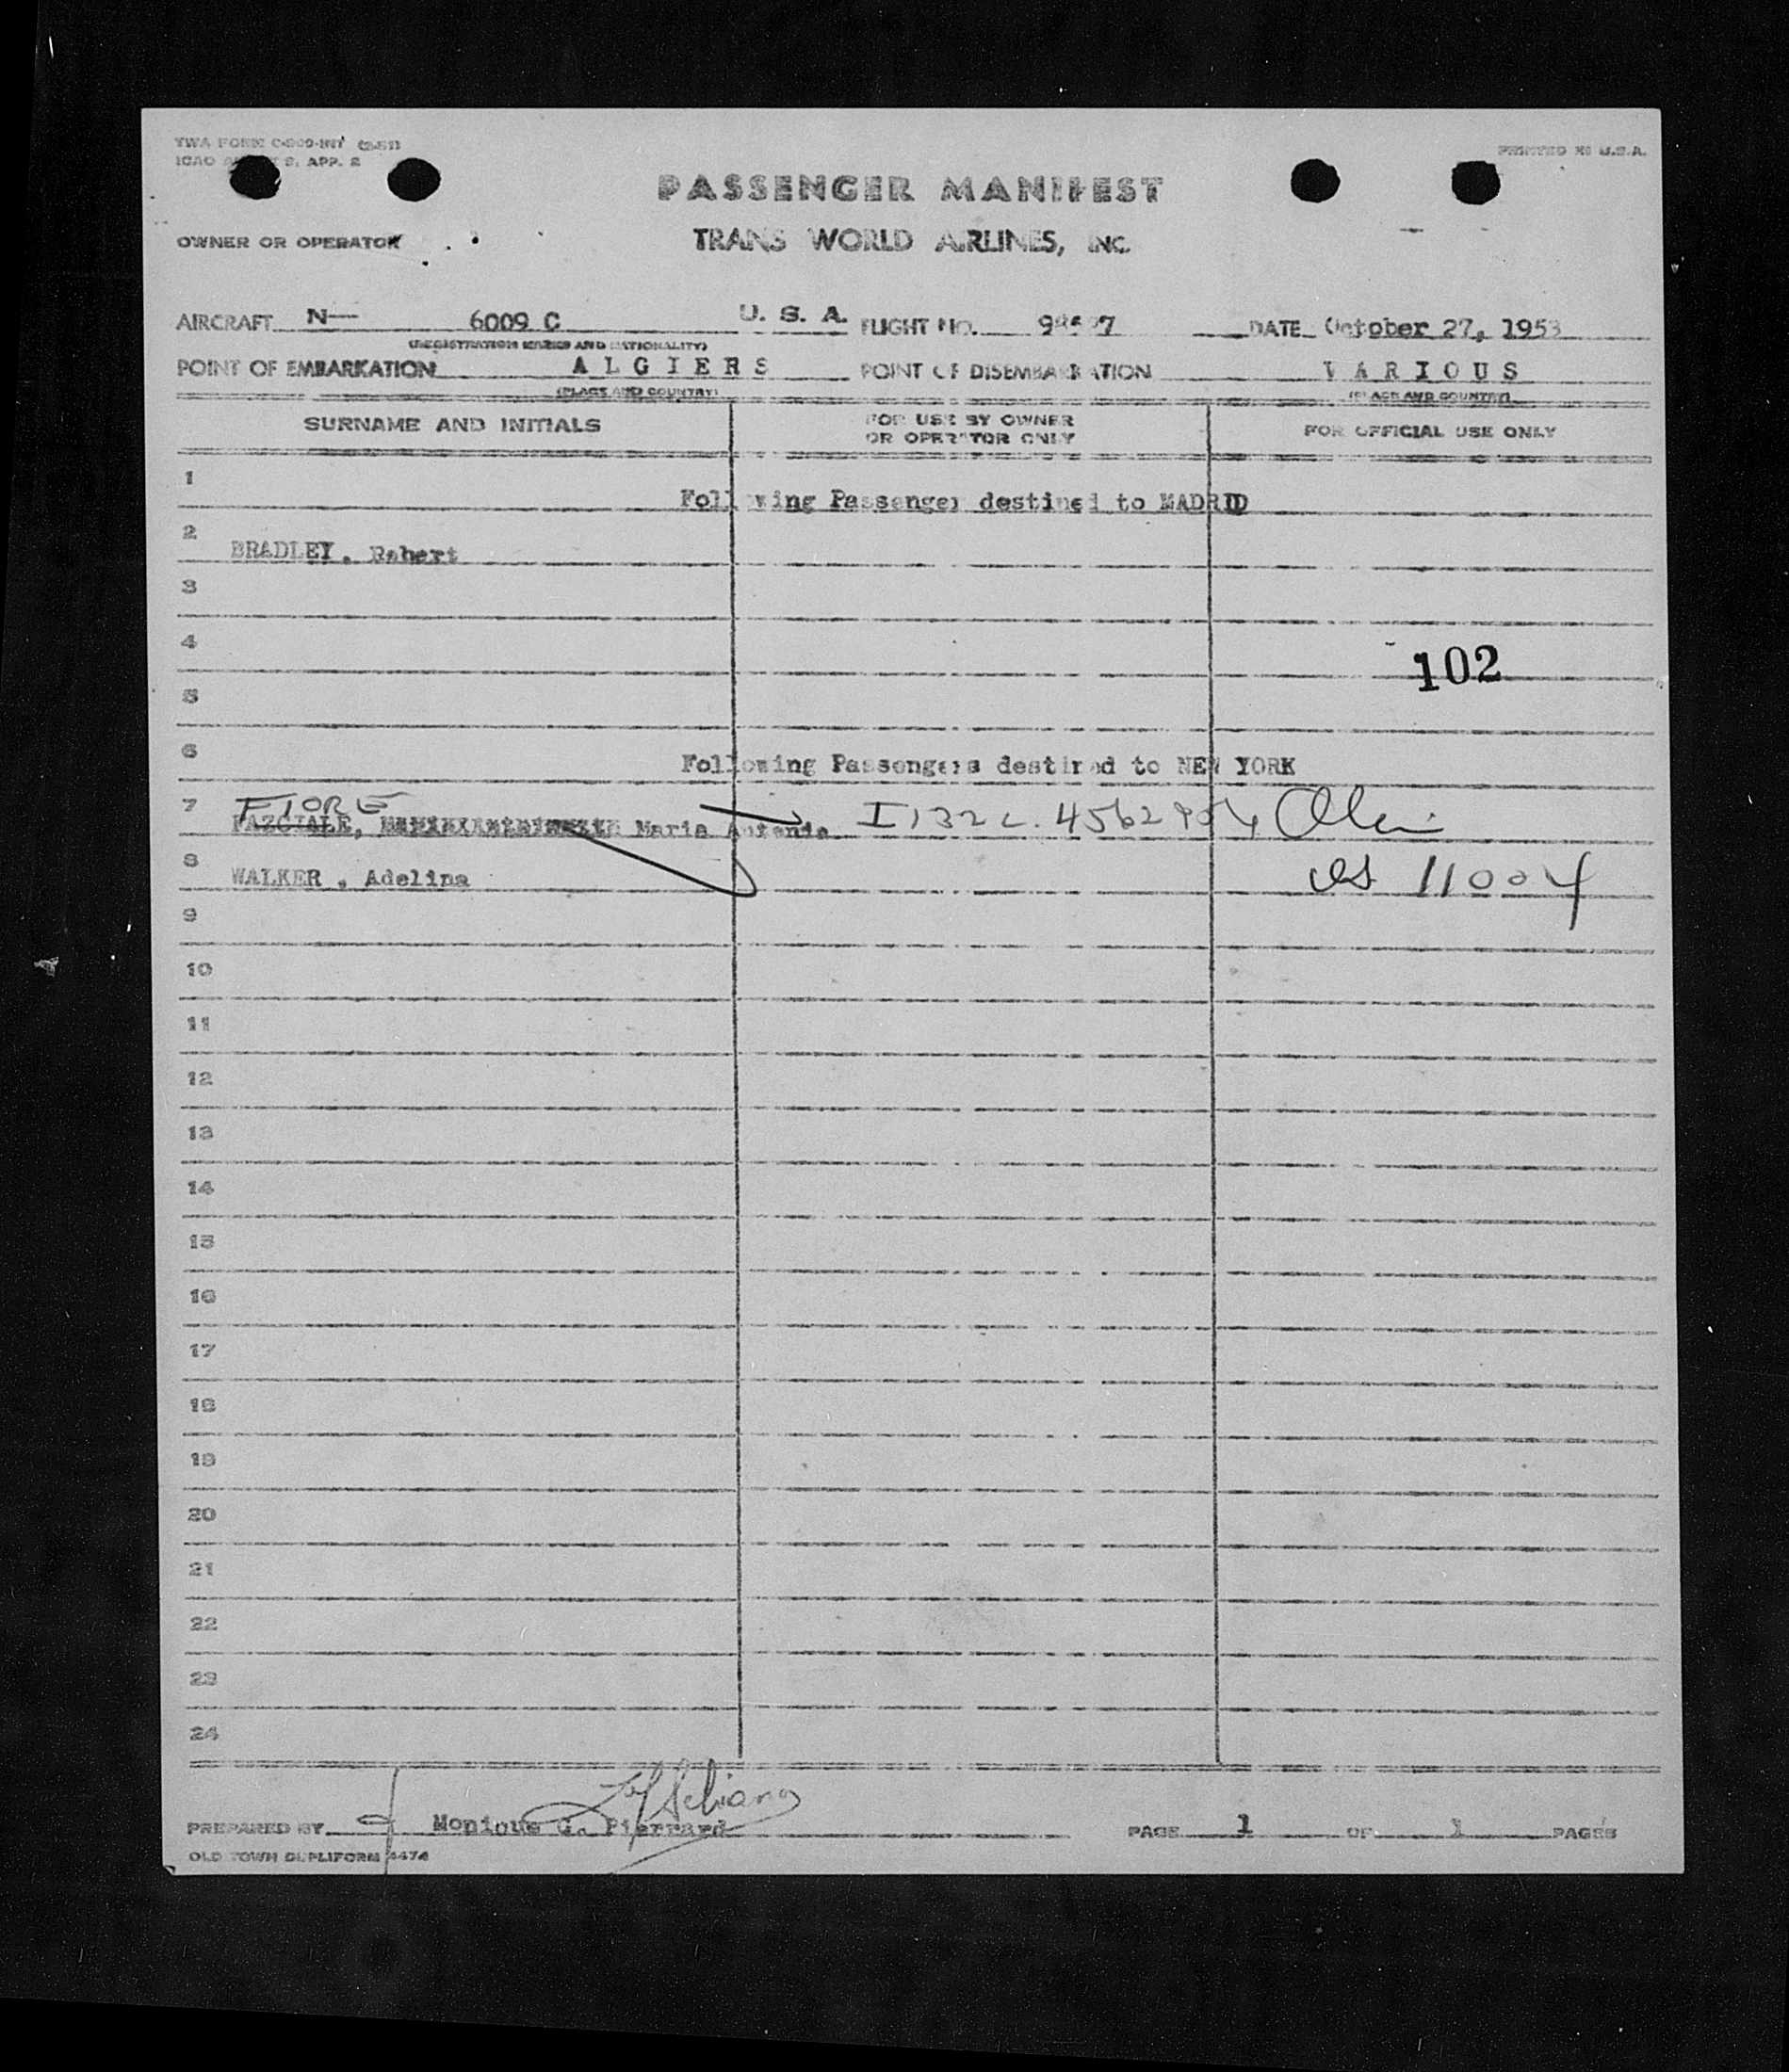 TWA FORM C-909-INT (2-51)
ICAO 9, APP. 2
PRINTED IN U.S.A.
PASSENGER MANIFEST
OWNER OR OPERATOR
TRANS WORLD AIRLINES, INC.
AIRCRAFT N— 6009 C U. S. A. FLIGHT NO. DATE October 27, 1953
(REGISTRATION MARKS AND NATIONALITY)
POINT OF EMBARKATION A L G I E R S POINT OF DISEMBARKATION V A R I O U S
(PLACE AND COUNTRY) (PLACE AND COUNTRY)
SURNAME AND INITIALS FOR USE BY OWNER OR OPERATOR ONLY FOR OFFICIAL USE ONLY
1
Following Passenger destined to MADRID
2 BRADLEY, Robert
3
4
102
5
6
Following Passengers destined to NEW YORK
FIORE
7 Maria Antonia
8 WALKER, Adelina 11004
9
10
11
12
13
14
15
16
17
18
19
20
21
22
23
24
PREPARED BY Monique G. Pierrard PAGE 1 OF 1 PAGES
OLD TOWN DUPLIFORM 4474